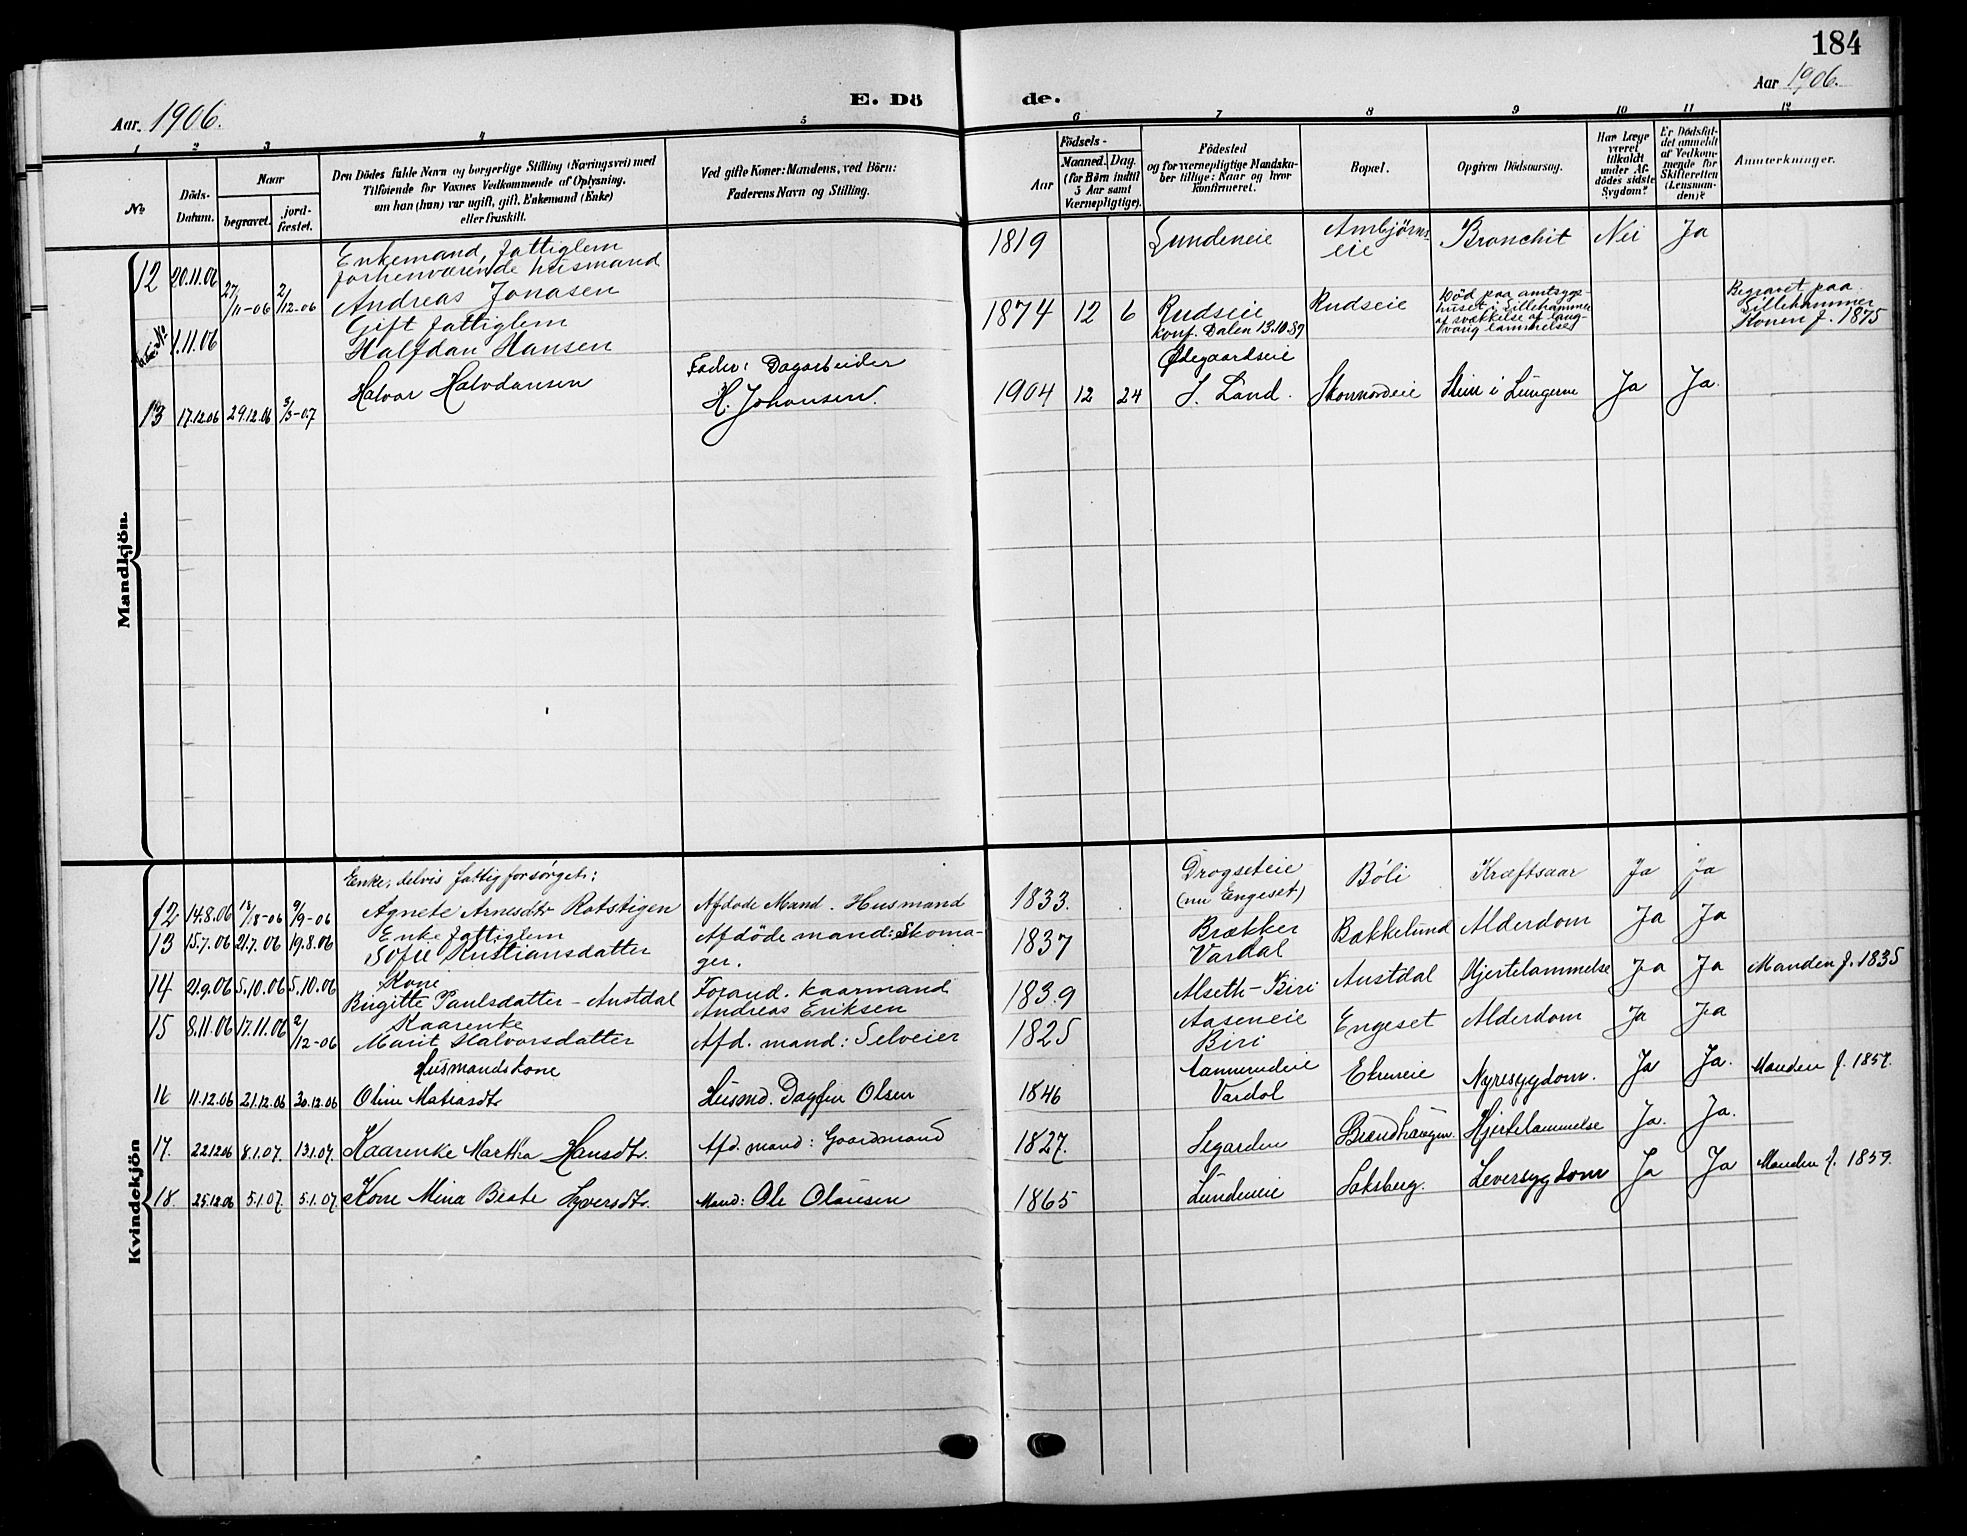 184
Aar 1906.
Aar 1906.
E. Dö
de.
1 2 3 4 5 6 7 8 9 10 11 12
No
Döds-
Datum.
Naar
begravet.
jord-
fæstet.
Den Dödes fulde Navn og borgerlige Stilling (Næringsvei) med
Tilföiende for Voxnes Vedkommende af Oplysning,
om han (hun) var ugift, gift, Enkemand (Enke)
eller fraskilt.
Ved gifte Koner: Mandens, ved Börn:
Faderens Navn og Stilling.
Aar
Födsels-
Maaned. Dag.
(for Börn indtil
5 Aar samt
Værnepligtige).
Födested
og for værnepligtige Mandska-
ber tillige: Naar og hvor
konfirmeret.
Bopæl.
Opgiven Dödsaarsag.
Har Læge
været
tilkaldt
under Af-
dödes sidste
Sygdom?
Er Dödsfal-
det anmeldt
af Vedkom-
mende for
Skifteretten
(Lensman-
den)?
Anmærkninger.
Mandkjön.
Enkemand, fattiglem
forhenværende husmand
12 20.11.06 27/11-06 2/12-06 Andreas Jonasen 1819 Lundeneie Ambjørns-
eie Bronchit Nei Ja
Gift fattiglem
1.11.06 Halfdan Hansen 1874 12 6 Rudseie
konf. Dalen 13.10.89 Rudseie
Död paa amtsyge-
huset i Lillehammer
af svækkelse af lang-
varig lammelse
Begravet paa
Lillehammer
Konen f. 1875
13 17.12.06 29.12.06 3/3-07 Halvor Halvdansen Fader: Dagarbeider
H. Johansen. 1904 12 24 Ødegaardseie
S. Land. Skonnordeie i Lungerne Ja Ja.
Kvindekjön
Enke, delvis fattigforsørget:
12 14.8.06 18/8-06 9/9-06 Agnete Arnesdtr Rotstigen Afdøde Mand. Husmand 1833. Drogseteie
(nu Engeset) Böli Kræftsaar Ja Ja
Enke fattiglem
13 15.7.06 21.7.06 19.8.06 Sofie Kristiansdatter Afdöde mand: Skoma-
ger. 1837 Brækker
Vardal Bakkelund Alderdom Ja Ja
Kone
14 21.9.06 5.10.06 5.10.06 Birgitte Paulsdatter - Austdal Forand. kaarmand
Andreas Eriksen 1839 Alseth - Biri Austdal Hjertelammelse Ja Ja Manden f. 1835
Kaarenke
15 8.11.06 17.11.06 2/12-06 Marit Halvorsdatter Afd. mand: Selveier 1825 Aaseneie
Biri Engeset Alderdom Ja Ja
Husmandskone
16 11.12.06 21.12.06 30.12.06 Oline Matiasdtr Husmd. Dagfin Olsen 1846
Vardal Ekreneie Nyresygdom. Ja Ja. Manden f. 1857.
17. 22.12.06 8.1.07. 13.1.07. Kaarenke Martha Hansdtr. Afd. mand: Gaardmand 1827. Segarden Brændhaugen. Hjertelammelse Ja. Ja.
18. 25.12.06 5.1.07. 5.1.07. Kone Mina Beate Syversdtr. Mand: Ole Olausen 1865 Lundeneie Saksberg. Leversygdom Ja Ja Manden f. 1859.